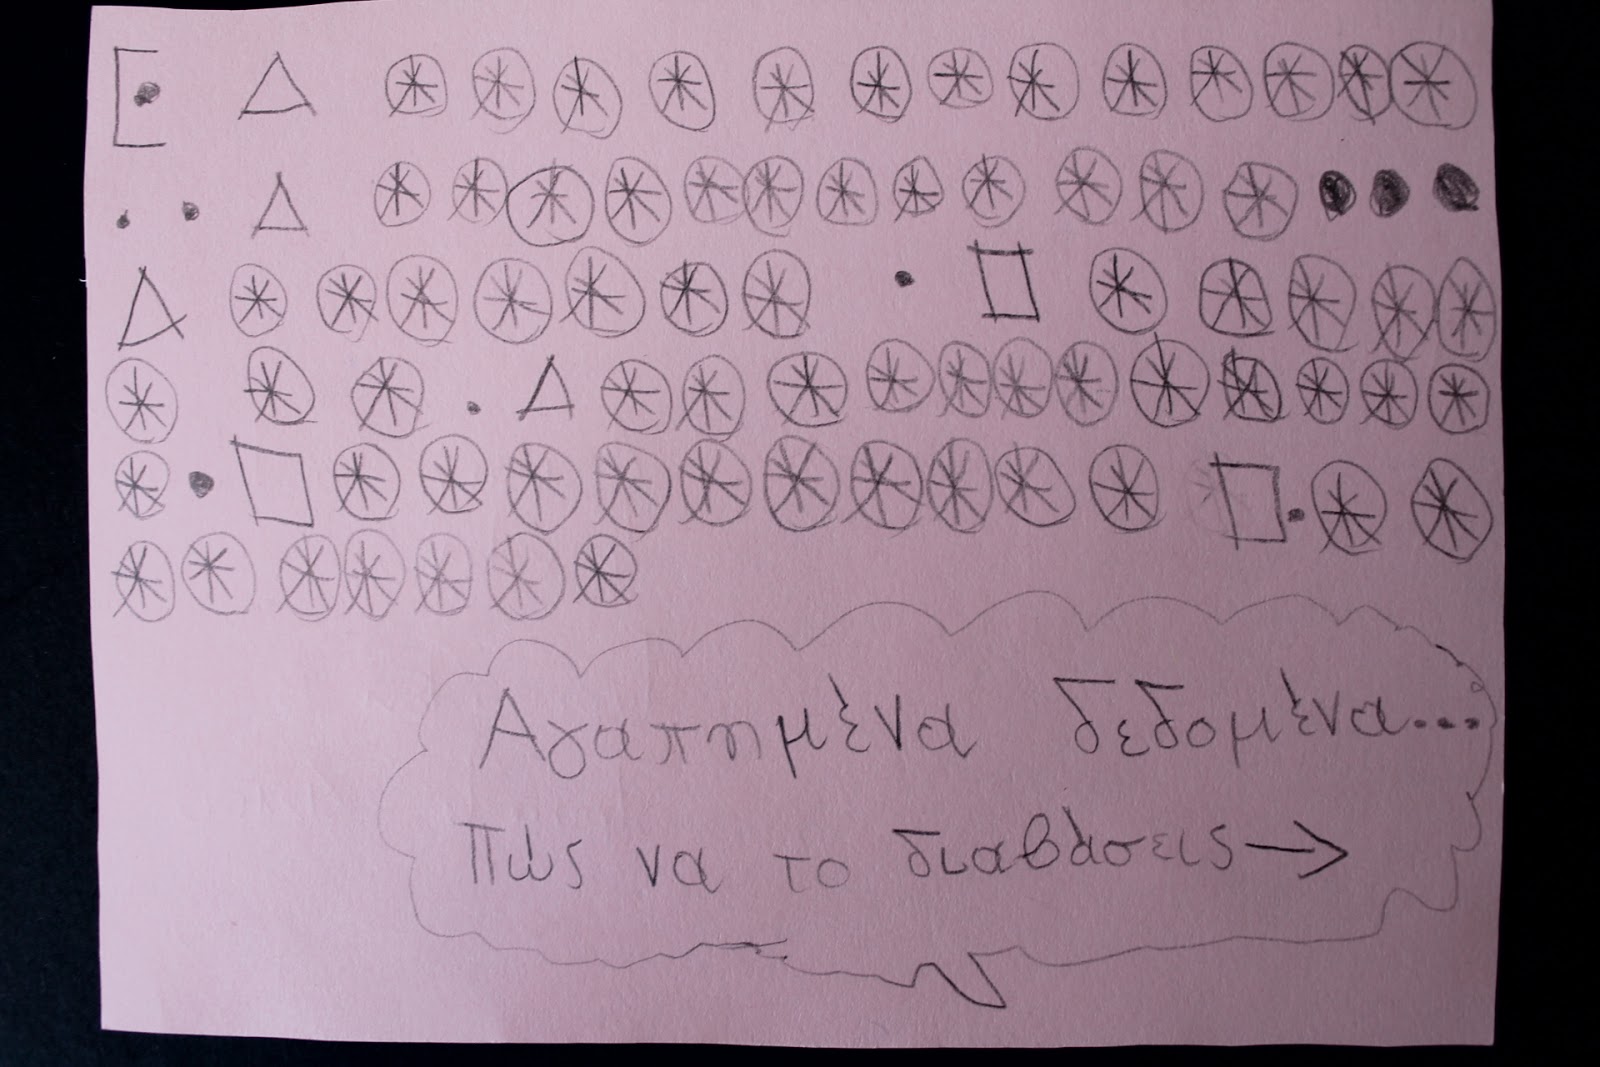 Αγαπημένα δεδομένα...
Πώς να το διαβάσεις→